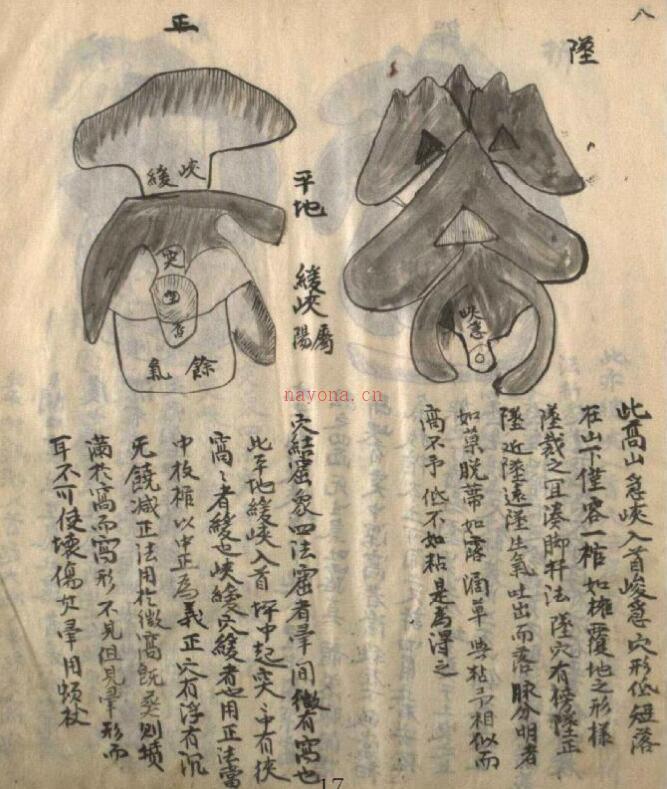 八
墜
峽急
此高山急峽入首峻急穴形低短落
在山下僅容一棺如攤覆地之形樣
墜裁之宜湊脚扦法墜穴有傍墜正
墜近墜遠墜生氣吐出而落脉分明者
如菓脱蒂如露滴草與粘亦相似而
高不予低不如粘是為得之
正
平地 緩峽屬陽
緩峽
突
苔
氣餘
穴結窟象四法窟者暈間微有窩也
此平地緩峽入首坪中起突中有
窩窩者緩也峽緩穴緩者也用正法當
中枚棺以中正為義正穴有浮有沉
无饒减正法用於微窩
滿於窩而窩形不見但見暈形而
耳不可使壞傷其暈用
nayona.cn
17